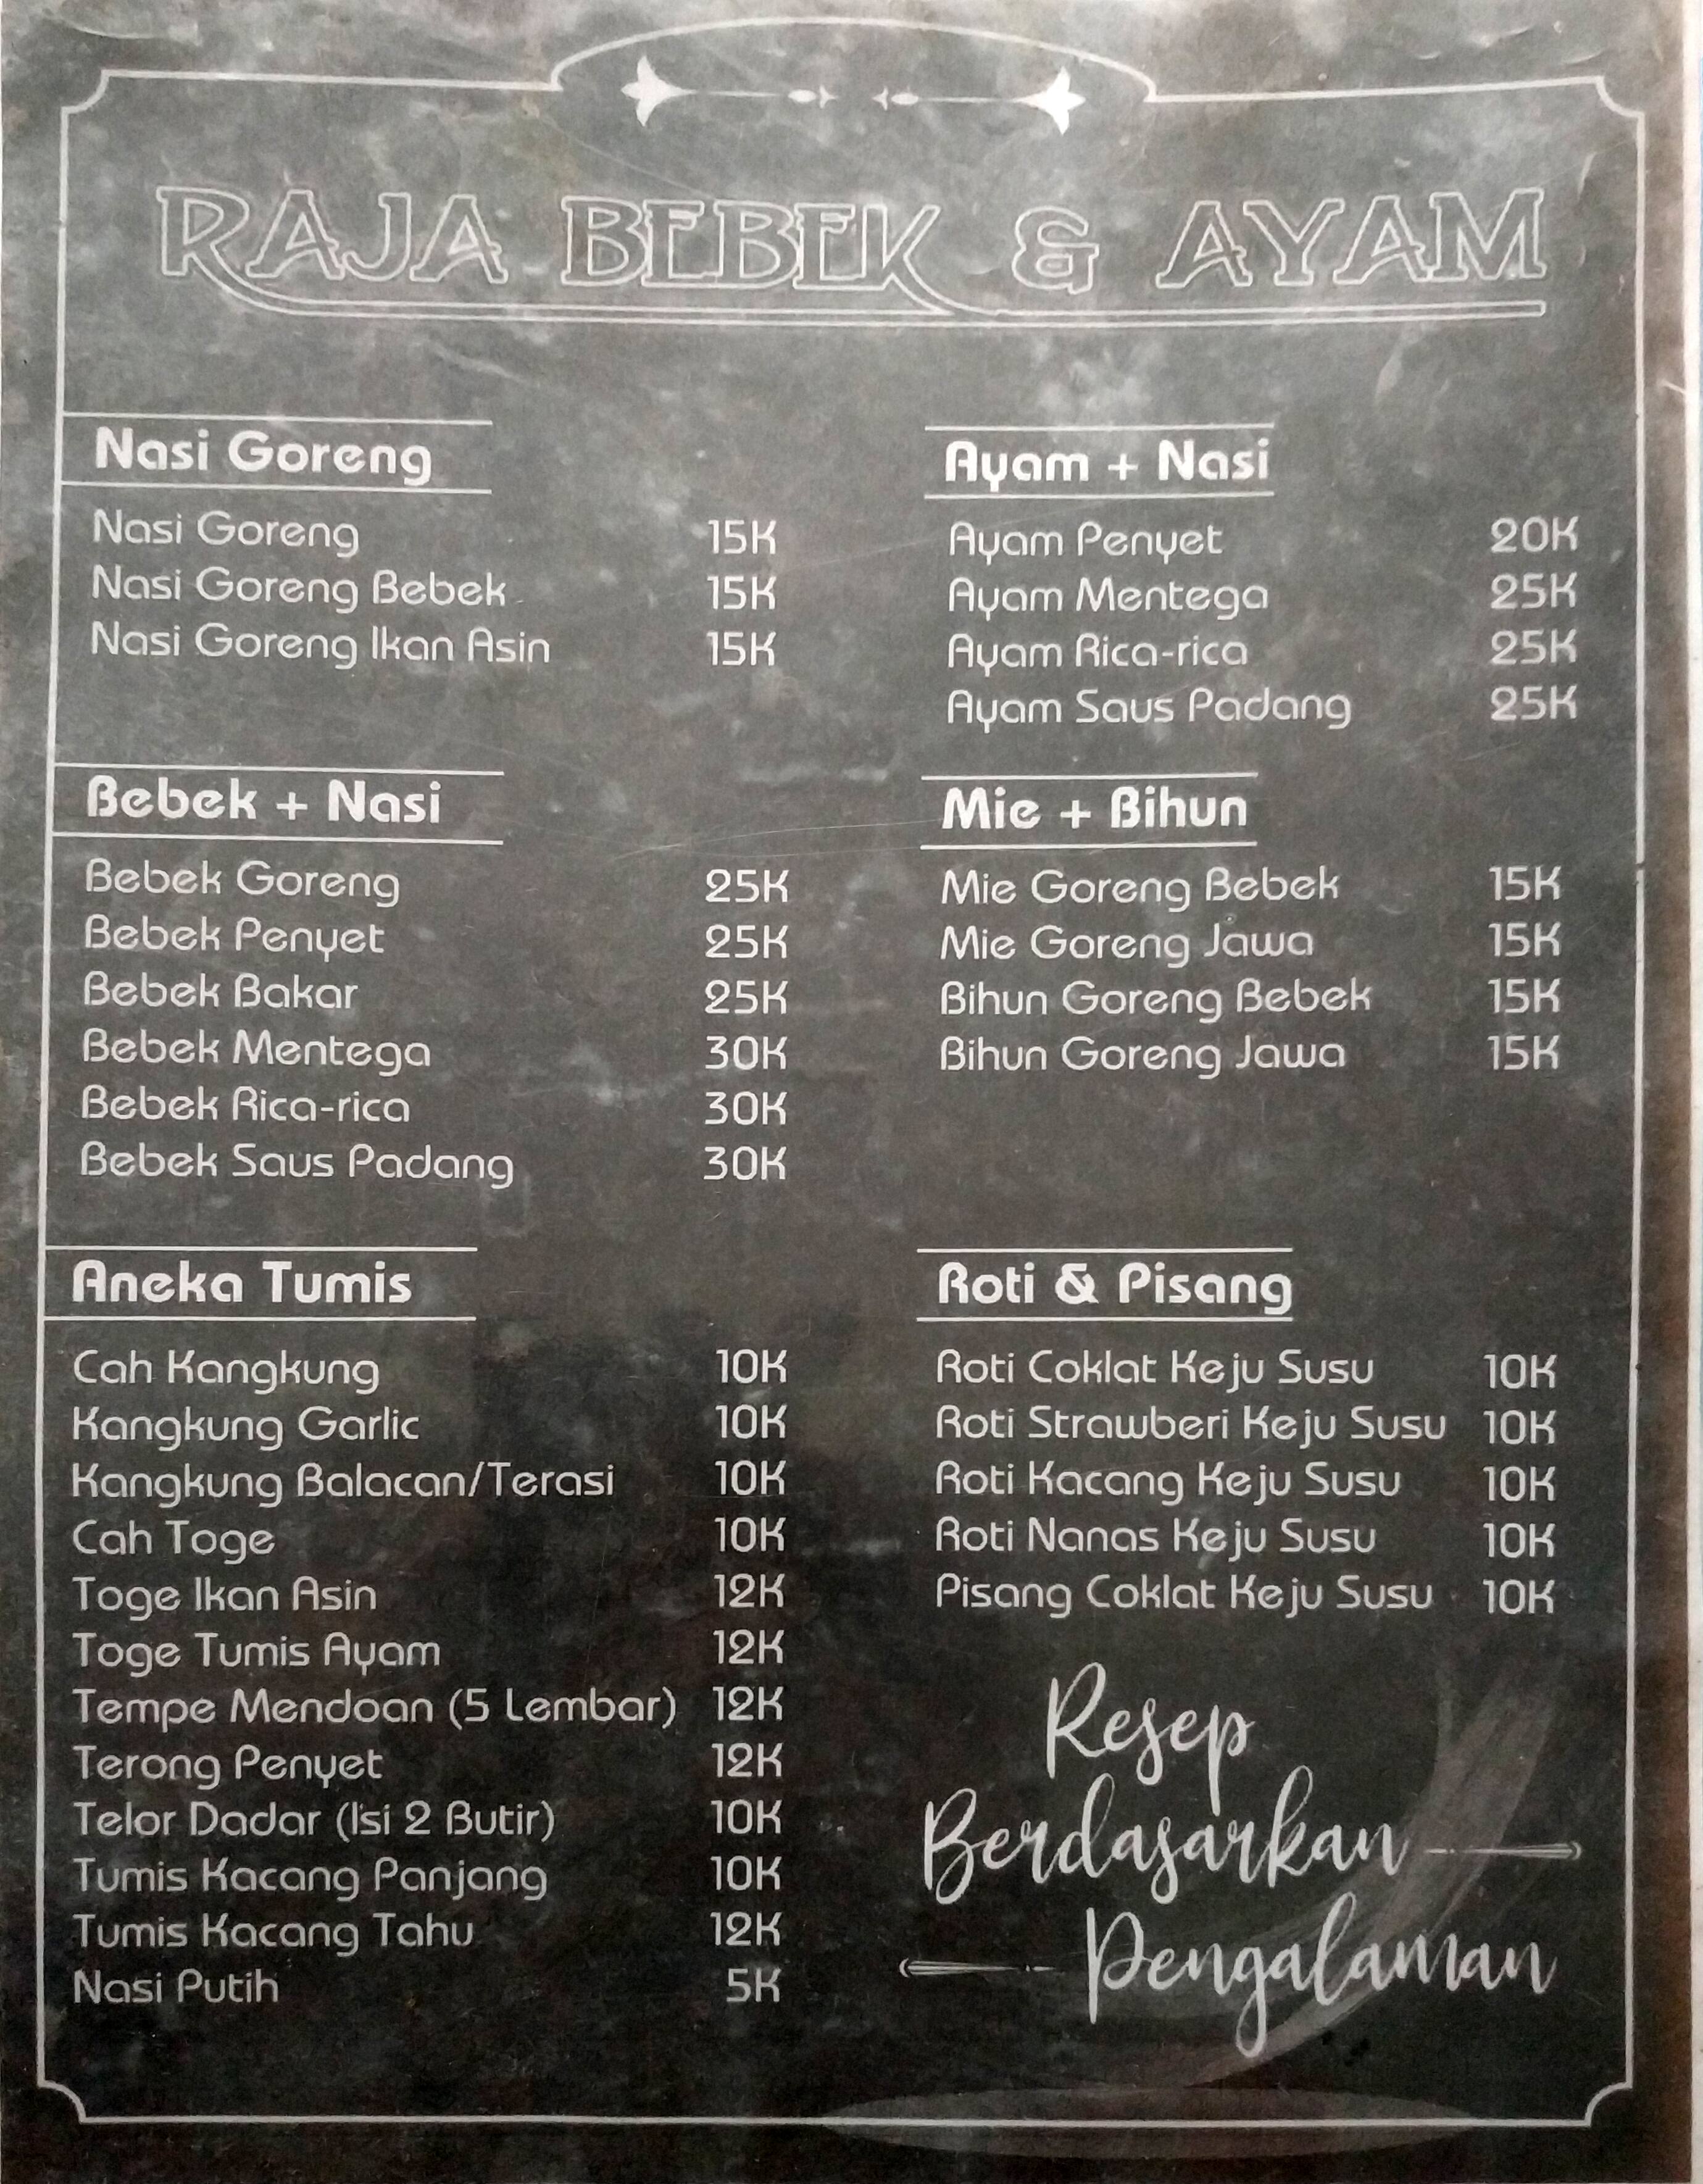 RAJA BEBEK & AYAM
Nasi Goreng
Nasi Goreng 15K
Nasi Goreng Bebek 15K
Nasi Goreng Ikan Asin 15K
Ayam + Nasi
Ayam Penyet 20K
Ayam Mentega 25K
Ayam Rica-rica 25K
Ayam Saus Padang 25K
Bebek + Nasi
Bebek Goreng 25K
Bebek Penyet 25K
Bebek Bakar 25K
Bebek Mentega 30K
Bebek Rica-rica 30K
Bebek Saus Padang 30K
Mie + Bihun
Mie Goreng Bebek 15K
Mie Goreng Jawa 15K
Bihun Goreng Bebek 15K
Bihun Goreng Jawa 15K
Aneka Tumis
Cah Kangkung 10K
Kangkung Garlic 10K
Kangkung Balacan/Terasi 10K
Cah Toge 10K
Toge Ikan Asin 12K
Toge Tumis Ayam 12K
Tempe Mendoan (5 Lembar) 12K
Terong Penyet 12K
Telor Dadar (Isi 2 Butir) 10K
Tumis Kacang Panjang 10K
Tumis Kacang Tahu 12K
Nasi Putih 5K
Roti & Pisang
Roti Coklat Keju Susu 10K
Roti Strawberi Keju Susu 10K
Roti Kacang Keju Susu 10K
Roti Nanas Keju Susu 10K
Pisang Coklat Keju Susu 10K
Resep
Berdasarkan
Pengalaman